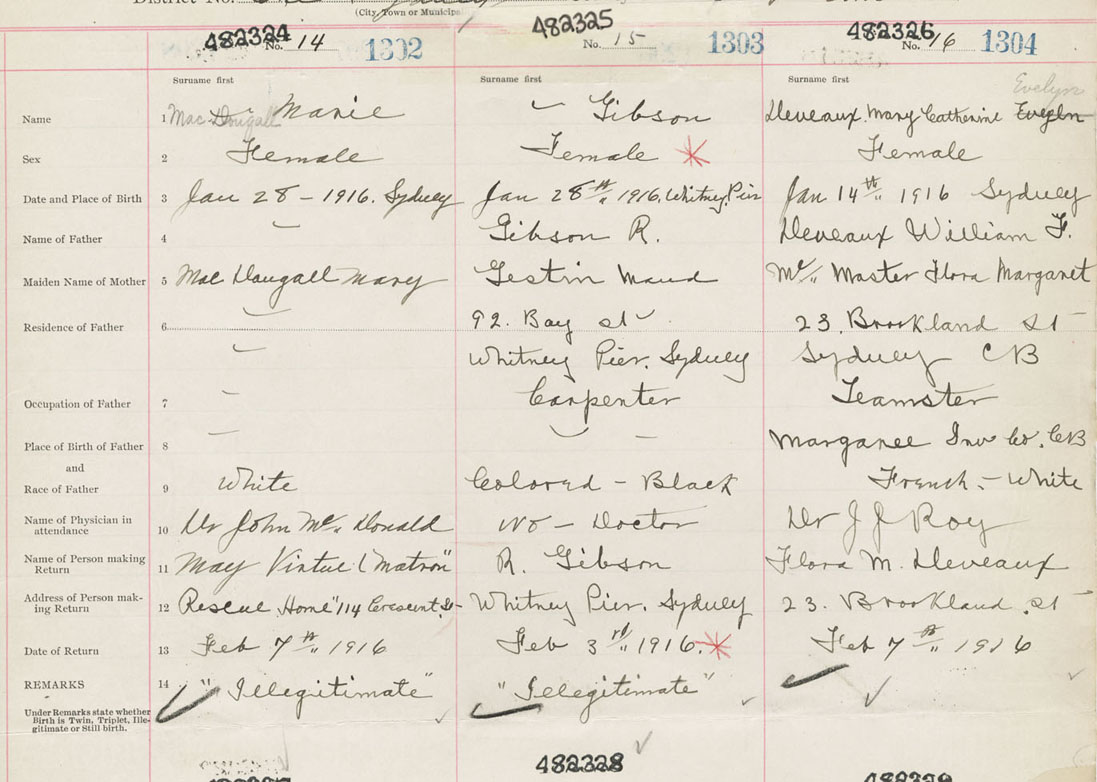 District No.
(City, Town or Municipal
482324 No. 14 1302
482325 No. 15 1303
482326 No. 16 1304
Surname first Surname first Surname first
Evelyn
Name 1 Mac Dougall Marie Gibson Deveaux Mary Catherine Evegln
Sex 2 Female Female Female
Date and Place of Birth 3 Jan 28 - 1916. Sydney Jan 28th 1916, Whitney Pier Jan 14th 1916 Sydney
Name of Father 4 Gibson R. Deveaux William F.
Maiden Name of Mother 5 Mac Dougall Mary Gestin Maud Mc Master Flora Margaret
Residence of Father 6 92. Bay st 23. Brookland St
Whitney Pier. Sydney Sydney CB
Occupation of Father 7 Carpenter Teamster
Place of Birth of Father 8 Margaree Inv Co. CB
and
Race of Father 9 White Colored - Black French - White
Name of Physician in attendance 10 Dr John Mc Donald No - Doctor Dr J J Roy
Name of Person making Return 11 May Virtue (Matron" R. Gibson Flora M. Deveaux
Address of Person making Return 12 Rescue Home "114 Crescent St Whitney Pier. Sydney 23. Brookland St
Date of Return 13 Feb 7th 1916 Feb 3rd 1916. Feb 7th 1916
REMARKS 14 "Illegitimate" "Illegitimate"
Under Remarks state whether
Birth is Twin, Triplet, Ille-
gitimate or Still birth.
482328